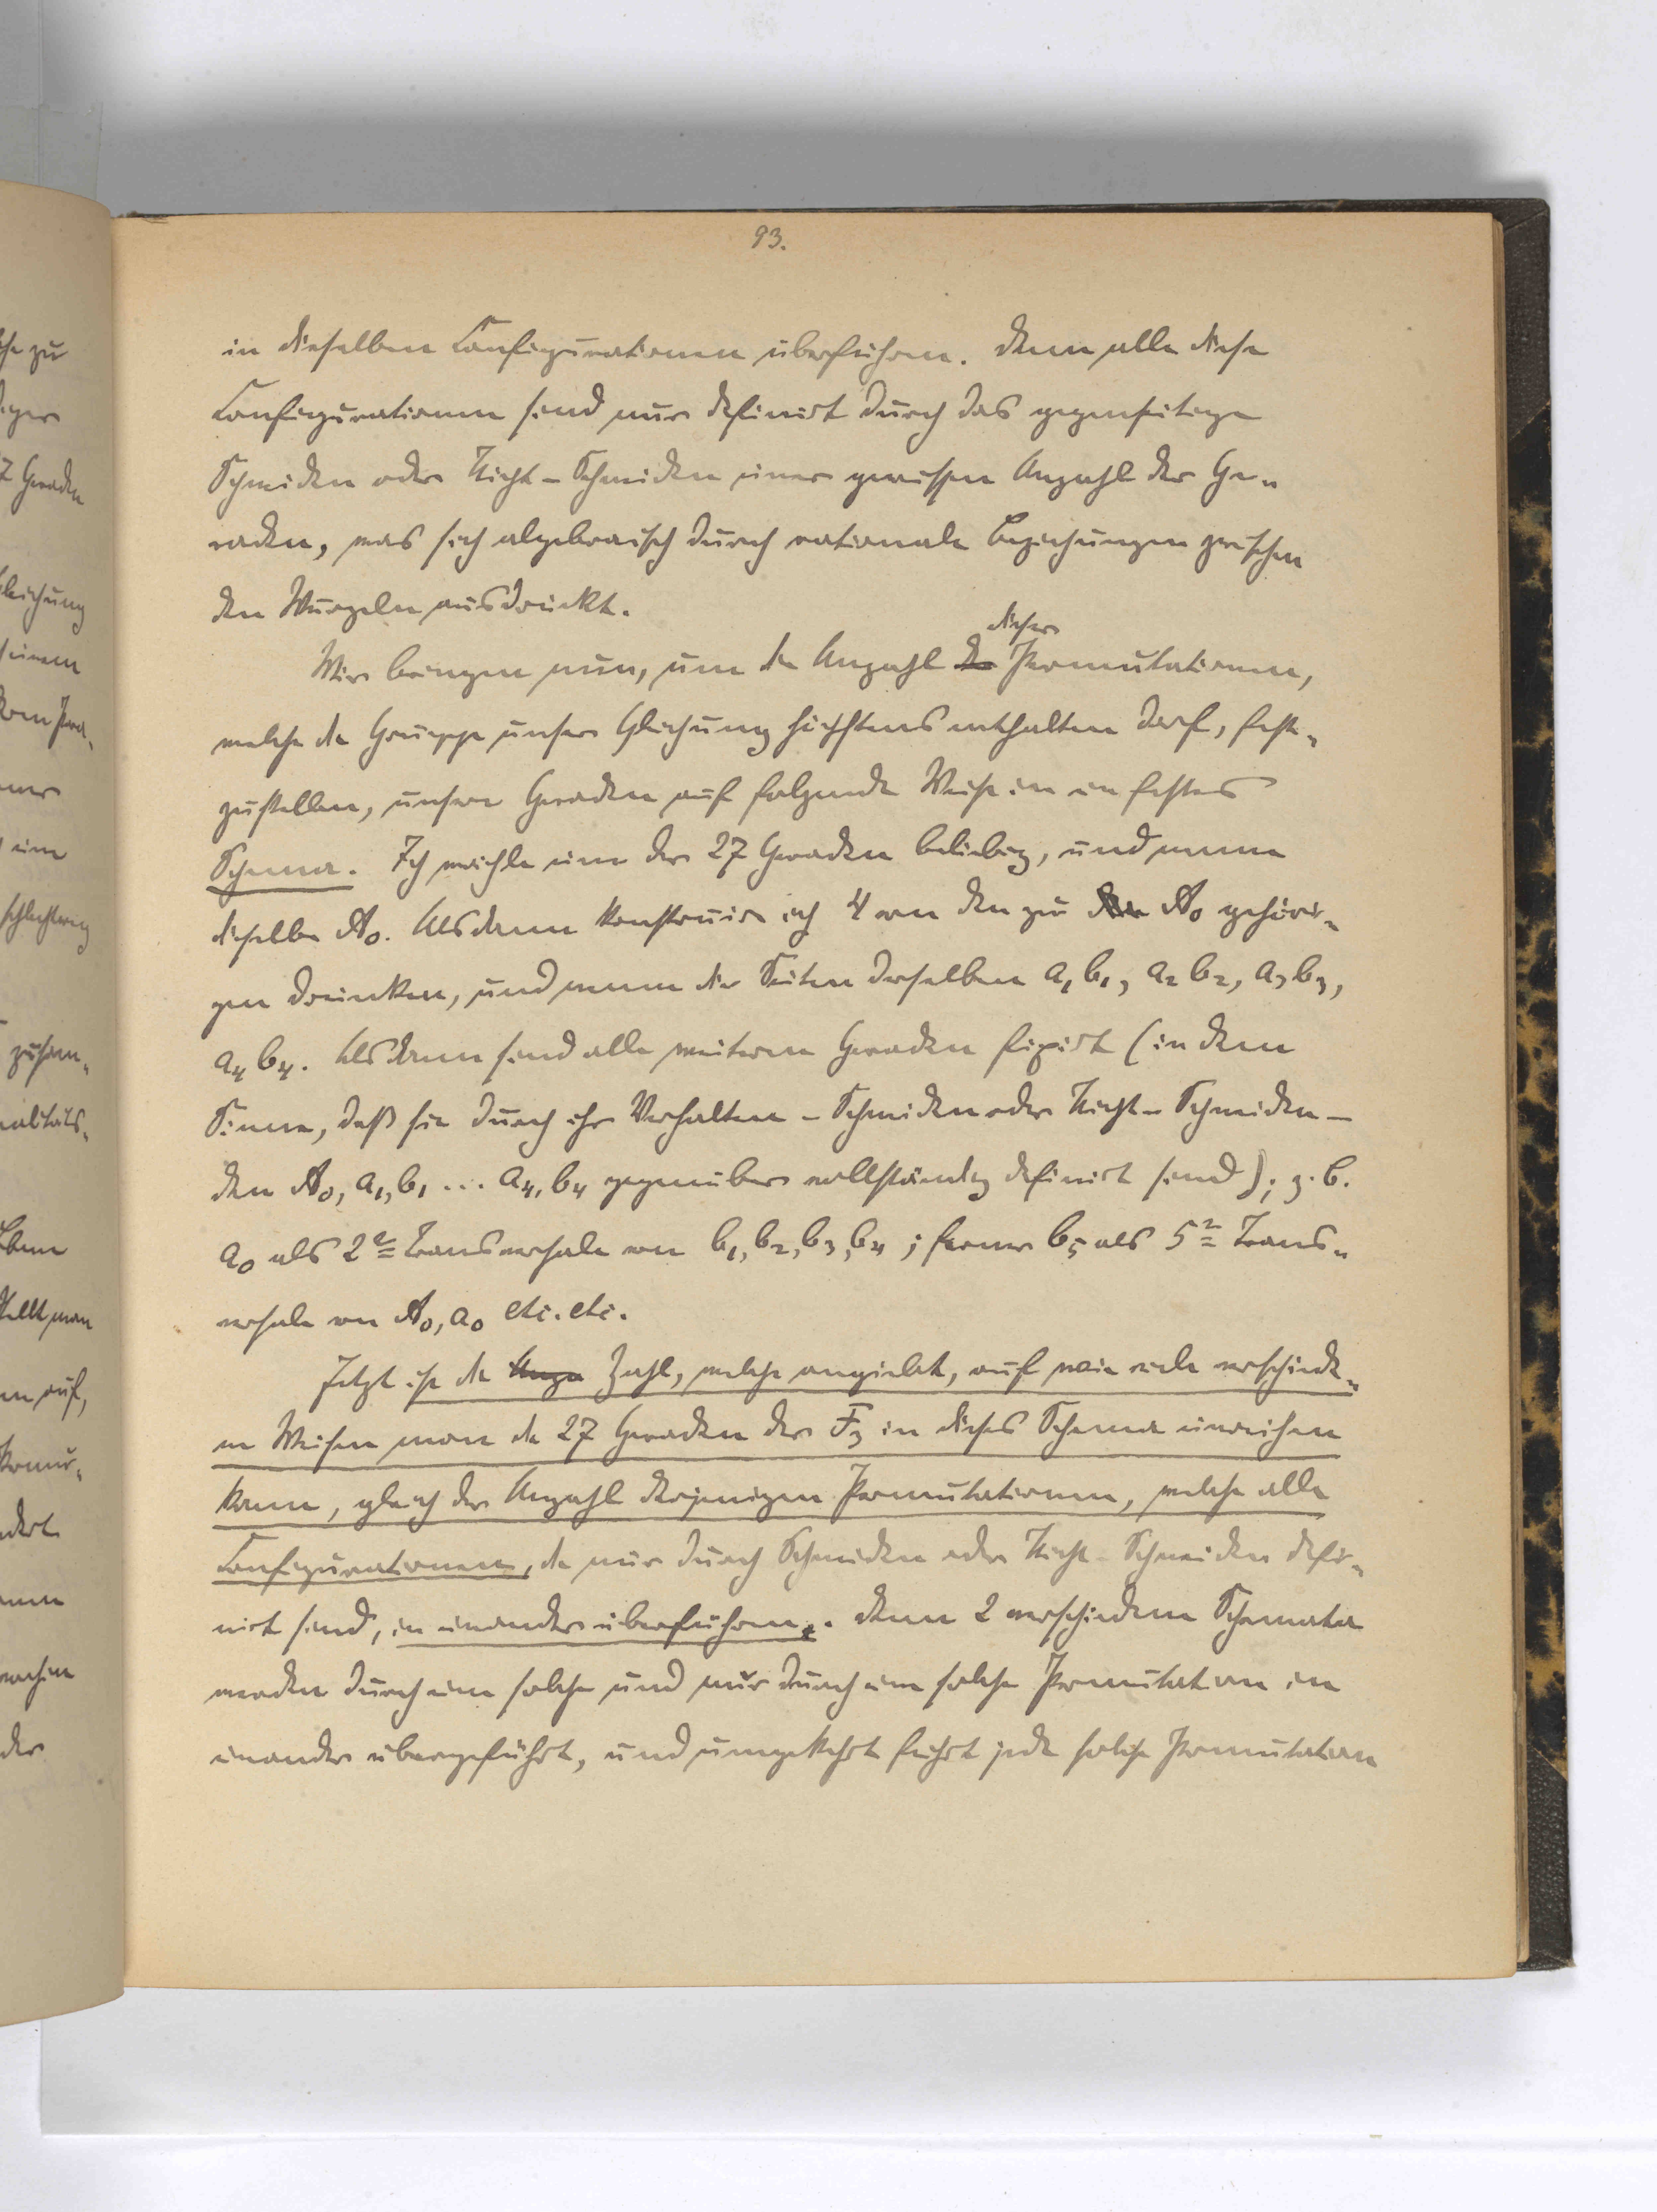 93.
in dieselben Configurationen überführen. Denn alle diese
Configurationen sind nur definirt durch das gegenseitige
Schneiden oder Nicht-Schneiden einer gewissen Anzahl der Ge-
raden, was sich algebraisch durch rationale Beziehungen zwischen
den Wurzeln ausdrückt.
dieser
Wir bringen nun, um die Anzahl der Permutationen,
welche die Gruppe unserer Gleichung höchstens enthalten darf, fest-
zustellen, unsere Geraden auf folgende Weise in ein festes
Schema. Ich wähle eine der 27 Geraden beliebig, und nenne
dieselbe A₀. Alsdann konstruire ich 4 von den zu A₀ gehöri-
gen Dreiecken, und nenne die Seiten derselben a₁b₁, a₂b₂, a₃b₃,
a₄b₄. Alsdann sind alle weiteren Geraden fixirt (in dem
Sinne, daß sie durch ihr Verhalten - Schneiden oder Nicht-Schneiden -
den A₀, a₁, b₁ ... a₄, b₄ gegenüber vollständig definirt sind); z. B.
a₀ als 2te Transversale von b₁, b₂, b₃, b₄; ferner b₅ als 5te Trans-
versale von A₀, a₀ etc. etc.
Jetzt ist die Anza Zahl, welche angiebt, auf wie viele verschiede-
ne Weisen man die 27 Geraden der F₃ in dieses Schema einreihen
kann, gleich der Anzahl derjenigen Permutationen, welche alle
Configurationen, die nur durch Schneiden oder Nicht-Schneiden defi-
nirt sind, in einander überführen. Denn 2 verschiedene Schemata
werden durch eine solche und nur durch eine solche Permutation in
einander übergeführt, und umgekehrt führt jede solche Permutation
che zu
Geraden
Gleichung
seinem
eine
schlechtweg
zusam-
alitäts-
stellt man
en auf,
der